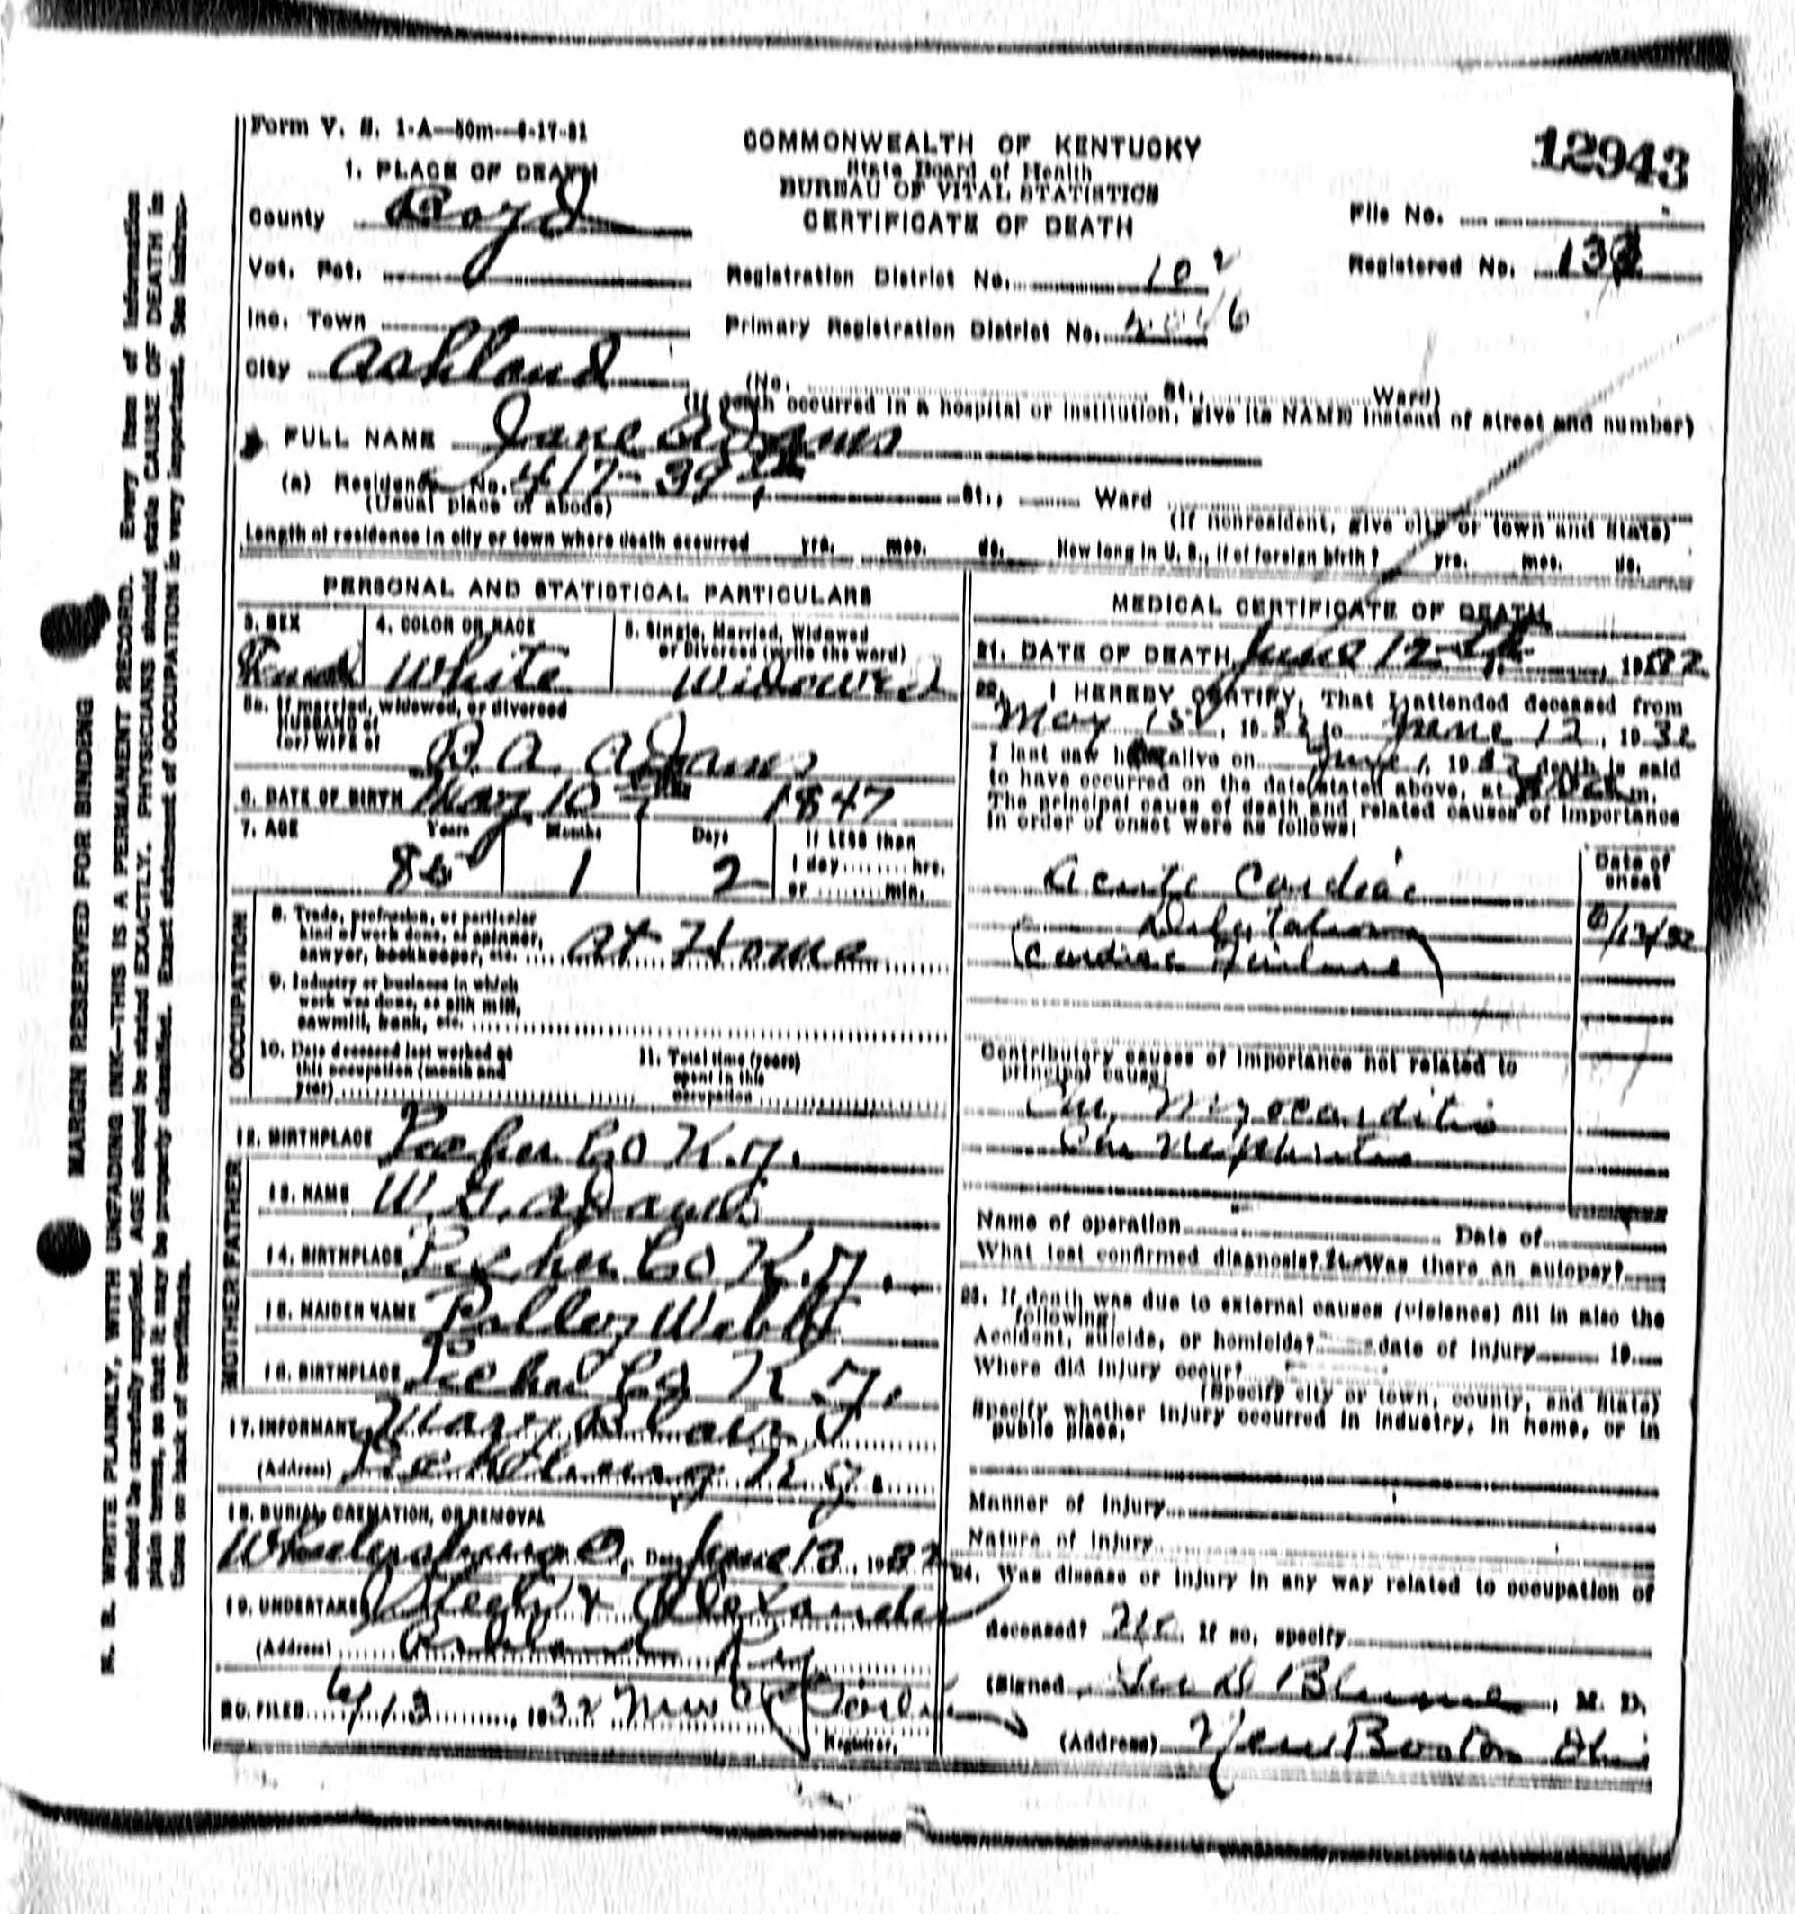 Form V. S. 1-A—50m—8-17-31
COMMONWEALTH OF KENTUCKY
State Board of Health
BUREAU OF VITAL STATISTICS
CERTIFICATE OF DEATH
12943
File No.
Registered No.
1. PLACE OF DEATH
County Boyd
Vot. Pct.
Registration District No. 102
Inc. Town
Primary Registration District No.
City Ashland
(No. St., Ward)
(If death occurred in a hospital or institution, give its NAME instead of street and number)
FULL NAME Jane Adams
(a) Residence No. 417-39th St., Ward
(Usual place of abode)
(If nonresident, give city or town and State)
Length of residence in city or town where death occurred yrs. mos. ds. How long in U. S., if of foreign birth? yrs. mos. ds.
PERSONAL AND STATISTICAL PARTICULARS
3. SEX
4. COLOR OR RACE
5. Single, Married, Widowed
or Divorced (write the word)
White Widowed
5a. If married, widowed, or divorced
HUSBAND of
(or) WIFE of
B. A. Adams
6. DATE OF BIRTH May 10th 1847
7. AGE Years Months Days If LESS than
85 1 2 1 day hrs.
or min.
OCCUPATION
8. Trade, profession, or particular
kind of work done, as spinner,
sawyer, bookkeeper, etc. At Home
9. Industry or business in which
work was done, as silk mill,
sawmill, bank, etc.
10. Date deceased last worked at
this occupation (month and
year)
11. Total time (years)
spent in this
occupation
12. BIRTHPLACE Co K.y.
FATHER
13. NAME Adams
14. BIRTHPLACE Co K.y.
MOTHER
15. MAIDEN NAME Polley Webb
16. BIRTHPLACE Co K.y.
17. INFORMANT Mary Blair
(Address) K.y.
18. BURIAL, CREMATION, OR REMOVAL
Wheelersburg O. Date June 13, 1932
19. UNDERTAKER & Alexander
(Address) Ashland Ky
20. FILED 6/13, 1932 Mrs
Registrar.
MEDICAL CERTIFICATE OF DEATH
21. DATE OF DEATH June 12th, 1932
22. I HEREBY CERTIFY, That I attended deceased from
May 1st, 1932 to June 12, 1932
I last saw her alive on June 1, 1932 death is said
to have occurred on the date stated above, at m.
The principal cause of death and related causes of importance
in order of onset were as follows:
Date of
onset
Acute Cardiac
Dilatation 6/12/32
(Cardiac Failure)
Contributory causes of importance not related to
principal cause:
Chr. Myocarditis
Chr Nephritis
Name of operation Date of
What test confirmed diagnosis? Was there an autopsy?
23. If death was due to external causes (violence) fill in also the
following:
Accident, suicide, or homicide? date of injury 19
Where did injury occur?
(Specify city or town, county, and State)
Specify whether injury occurred in industry, in home, or in
public place.
Manner of injury
Nature of injury
24. Was disease or injury in any way related to occupation of
deceased? No. If so, specify
(Signed) Blume, M. D.
(Address) New Boston Ohio
MARGIN RESERVED FOR BINDING
N. B. WRITE PLAINLY, WITH UNFADING INK—THIS IS A PERMANENT RECORD. Every item of information
should be carefully supplied. AGE should be stated EXACTLY. PHYSICIANS should state CAUSE OF DEATH in
plain terms, so that it may be properly classified. Exact statement of OCCUPATION is very important. See instruc-
tions on back of certificate.